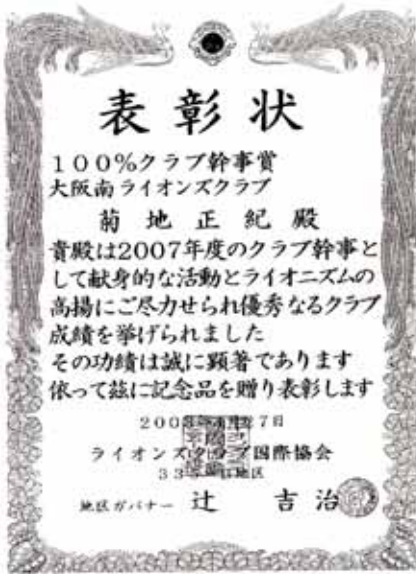 表彰状
100%クラブ幹事賞
大阪南ライオンズクラブ
菊地正紀殿
貴殿は2007年度のクラブ幹事と
して献身的な活動とライオニズムの
高揚にご尽力せられ優秀なるクラブ
成績を挙げられました
その功績は誠に顕著であります
依って茲に記念品を贈り表彰します
7日
ライオンズクラブ国際協会
地区
地区ガバナー 辻 吉治